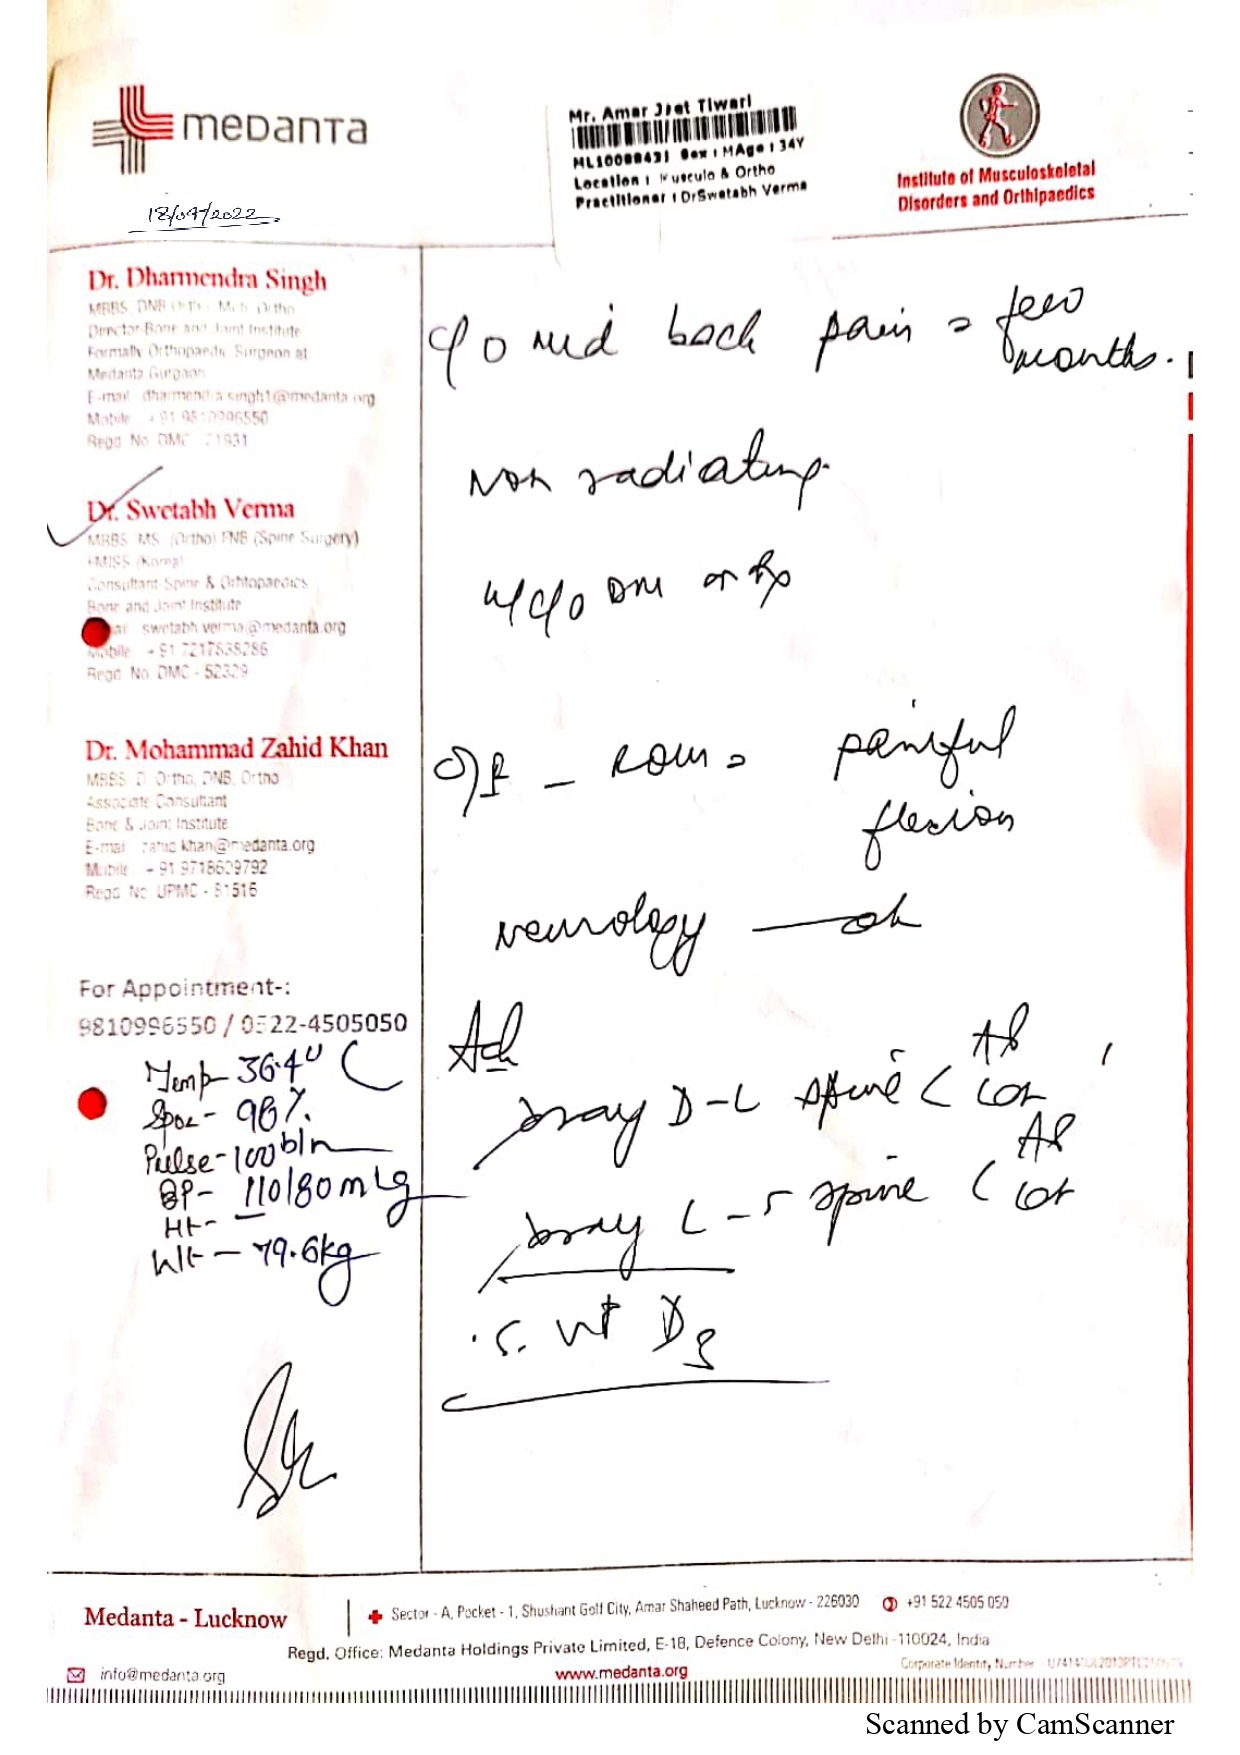 medanta
Mr. Amar Jeet Tiwari
ML10088431 Sex : MAge : 34Y
Location : Musculo & Ortho
Practitioner : DrSwetabh Verma
Institute of Musculoskeletal
Disorders and Orthipaedics
18/07/2022
Dr. Dharmendra Singh
MBBS, DNB Ortho, Mch Ortho
Director-Bone and Joint Institute
Formally Orthopaedic Surgeon at
Medanta Gurgaon
E-mail dharmendra.singh1@medanta.org
Mobile +91 9810996550
Regd No DMC
Dr. Swetabh Verma
MBBS MS (Ortho) FNB (Spine Surgery)
FMISS (Korea)
Consultant Spine & Orhtopaedics
Bone and Joint Institute
swetabh.verma@medanta.org
Mobile +91 7217835286
Regd. No. DMC - 52329
Dr. Mohammad Zahid Khan
MBBS D. Ortho, DNB, Ortho
Associate Consultant
Bone & Joint Institute
E-mail zahid.khan@medanta.org
Mobile - +91 9718609792
Regd. No. UPMC - 81516
For Appointment-:
9810996550 / 0522-4505050
Temp- 36.4° C
Spo2- 98%
Pulse-100b/n
BP- 110/80mHg
Ht-
Wt- 79.6kg
c/o mid back pain = few
months.
Non radiating.
o/E - ROM = painful
flexion
neurology — ok
Adv
xray D-L spine < AP
Lat
xray L-S spine < AP
Lat
S. Vit D3
Medanta - Lucknow
Sector - A, Pocket - 1, Shushant Golf City, Amar Shaheed Path, Lucknow - 226030
+91 522 4505 050
Regd. Office: Medanta Holdings Private Limited, E-18, Defence Colony, New Delhi -110024, India
info@medanta.org
www.medanta.org
Corporate Identity Number
Scanned by CamScanner